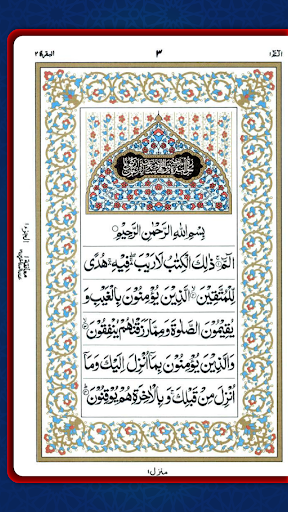 الٓمّٓ ١
٣
البقرة ٢
بِسْمِ اللهِ الرَّحْمٰنِ الرَّحِيْمِ
الٓمّٓ ۚ ذٰلِكَ الْكِتٰبُ لَا رَيْبَ ۛ فِيْهِ ۛ هُدًى
لِّلْمُتَّقِيْنَ ۙ الَّذِيْنَ يُؤْمِنُوْنَ بِالْغَيْبِ وَ
يُقِيْمُوْنَ الصَّلٰوةَ وَمِمَّا رَزَقْنٰهُمْ يُنْفِقُوْنَ ۙ
وَالَّذِيْنَ يُؤْمِنُوْنَ بِمَآ اُنْزِلَ اِلَيْكَ وَمَآ
اُنْزِلَ مِنْ قَبْلِكَ ۚ وَبِالْاٰخِرَةِ هُمْ يُوْقِنُوْنَ
منزل ١